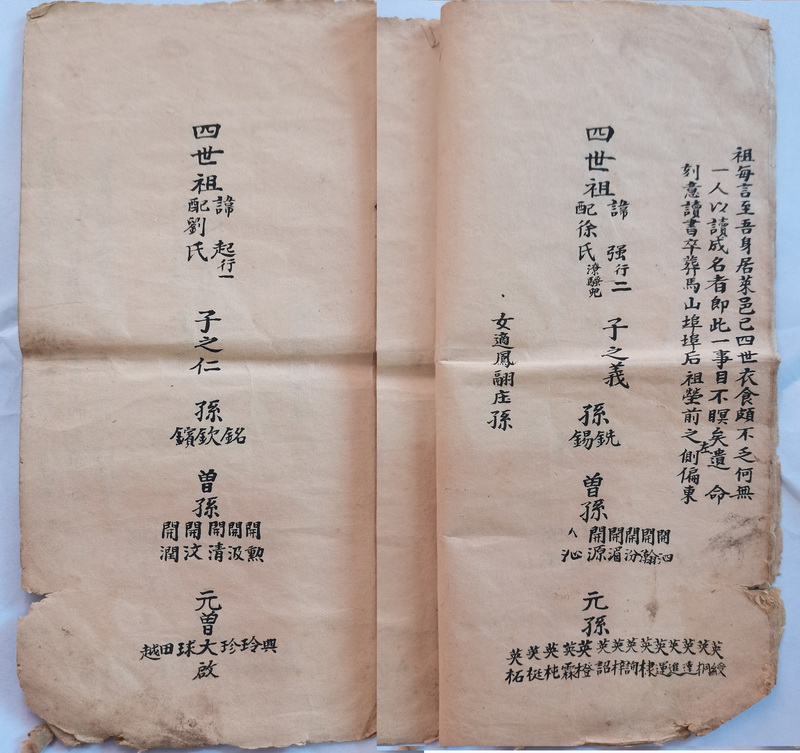 祖每言至吾身居萊邑已四世衣食頗不乏何無
一人以讀成名者即此一事目不瞑矣遺命
刻意讀書卒葬馬山埠埠后祖塋前之左側偏東
四世祖
諱强行二
配徐氏
子之義
孫
銑錫
曾孫
開泗
開瀚
開汾
開湄
開源
沁
元孫
英綬
英桐
英達
英進
英運
英棣
英詢
英梓
英詔
英橙
英霖
英杶
英梃
英柘
女適鳳翩庄孫
四世祖
諱起行一
配劉氏
子之仁
孫
銘欽鑌
曾孫
開勲
開汲
開清
開汶
開潤
元曾
興玲珍大球田越
啟